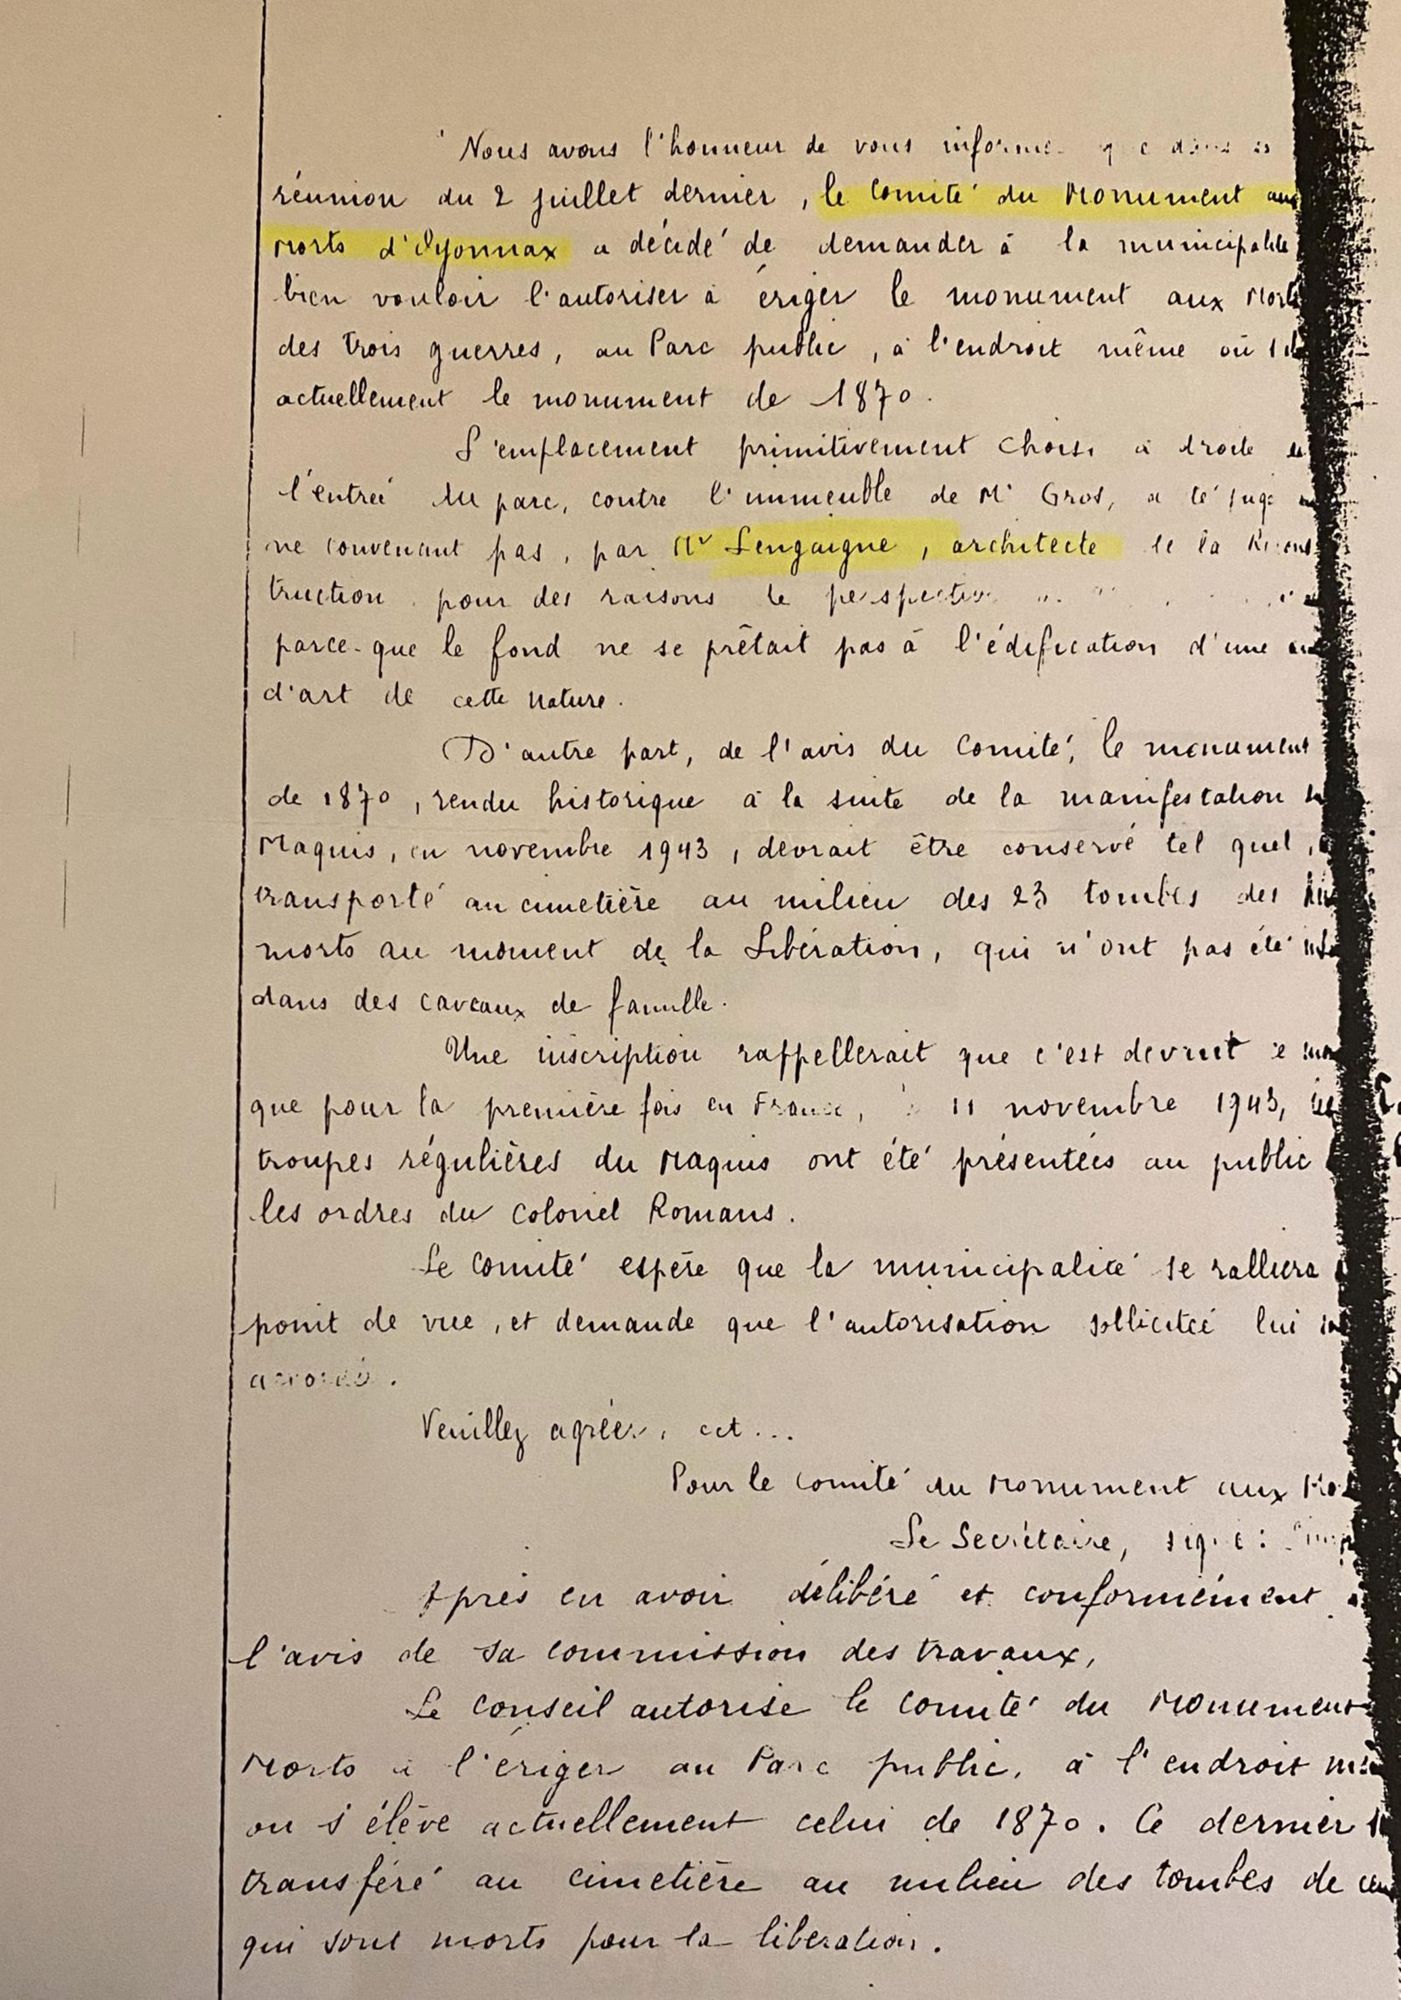 Nous avons l'honneur de vous informe
réunion du 2 juillet dernier, le Comité du Monument aux
Morts d'Oyonnax a décidé de demander à la municipalité
bien vouloir l'autoriser à ériger le monument aux Morts
des trois guerres, au Parc public, à l'endroit même où
actuellement le monument de 1870.
L'emplacement primitivement choisi à droite de
l'entreé du parc, contre l'immeuble de Mr Gros, a
ne convenant pas, par Mr Lengaigne, architecte de la Recons
truction pour des raisons de perspective
parce-que le fond ne se prêtait pas à l'édification d'une
d'art de cette nature.
D'autre part, de l'avis du Comité, le monument
de 1870, rendu historique à la suite de la manifestation
Maquis, en novembre 1943, devrait être conservé tel quel,
transporté au cimetière au milieu des 23 tombes des
morts au moment de la Libération, qui n'ont pas été
dans des caveaux de famille.
Une inscription rappellerait que c'est devant
que pour la première fois en France, 11 novembre 1943,
troupes régulières du Maquis ont été présentées au public
les ordres du Colonel Romans.
Le Comité espère que la municipalité se ralliera
point de vue, et demande que l'autorisation sollicitée lui
Veuillez agréer, ect...
Pour le Comité du Monument aux
Le Secrétaire, signé:
Après en avoir délibéré et conformément
l'avis de sa commission des travaux,
Le Conseil autorise le Comité du Monument
Morts à l'ériger au Parc public, à l'endroit
ou s'élève actuellement celui de 1870. Ce dernier
transféré au cimetière au milieu des tombes de ceux
qui sont morts pour la libération.